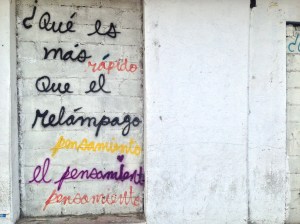 ¿Qué es
más rápido
Que el
relámpago
pensamiento
el pensamiento
pensamiento